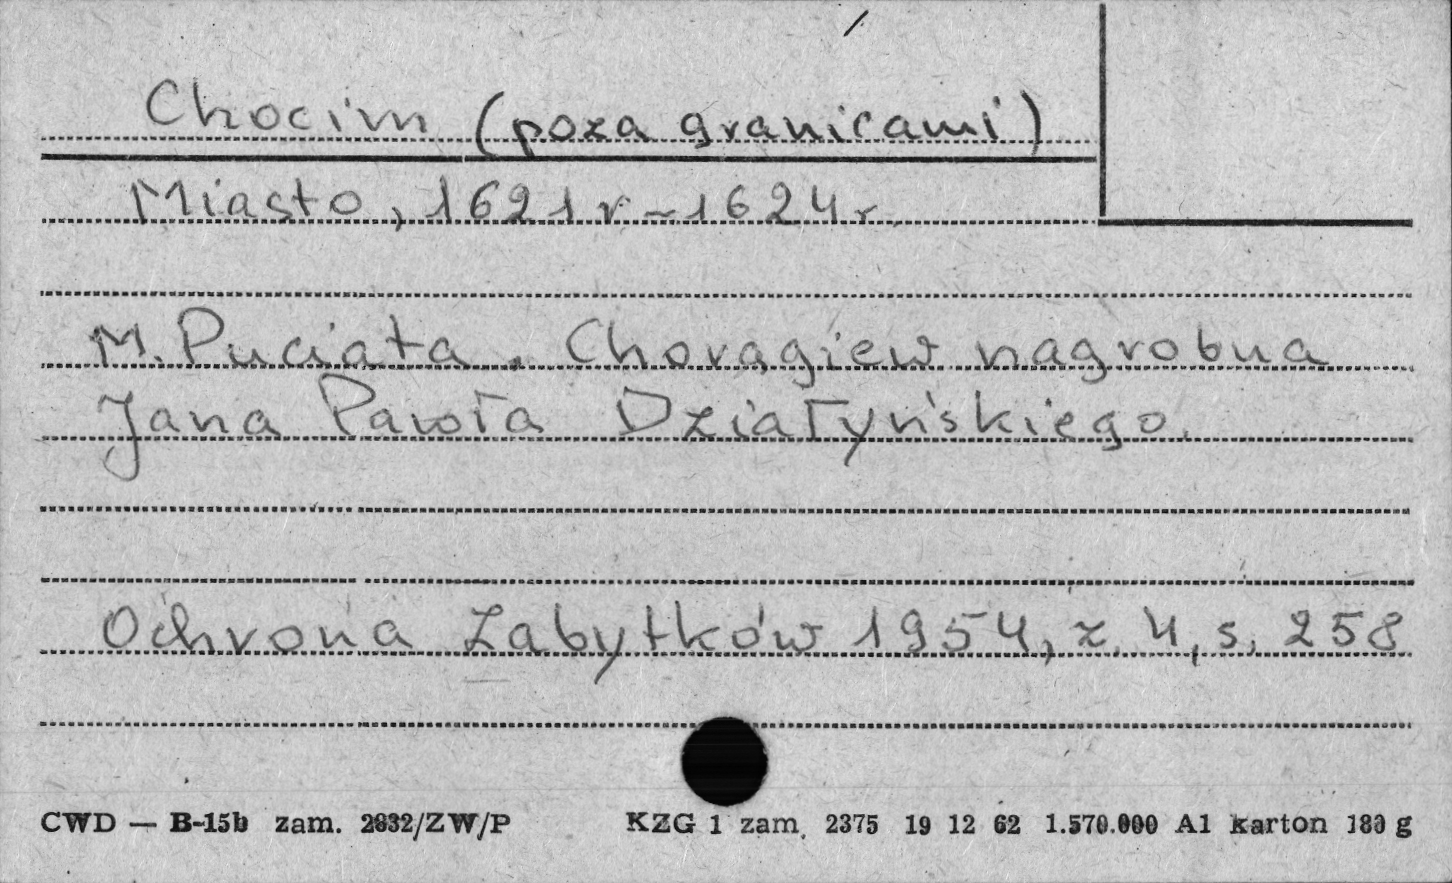 Chocim (poza granicami)
Miasto, 1621 r – 1624 r
M. Puciata. Chorągiew nagrobna
Jana Pawła Działyńskiego.
Ochrona Zabytków 1954, z. 4, s. 258
CWD — B-15b zam. 2832/ZW/P KZG 1 zam. 2375 19 12 62 1.570.000 A1 karton 180 g